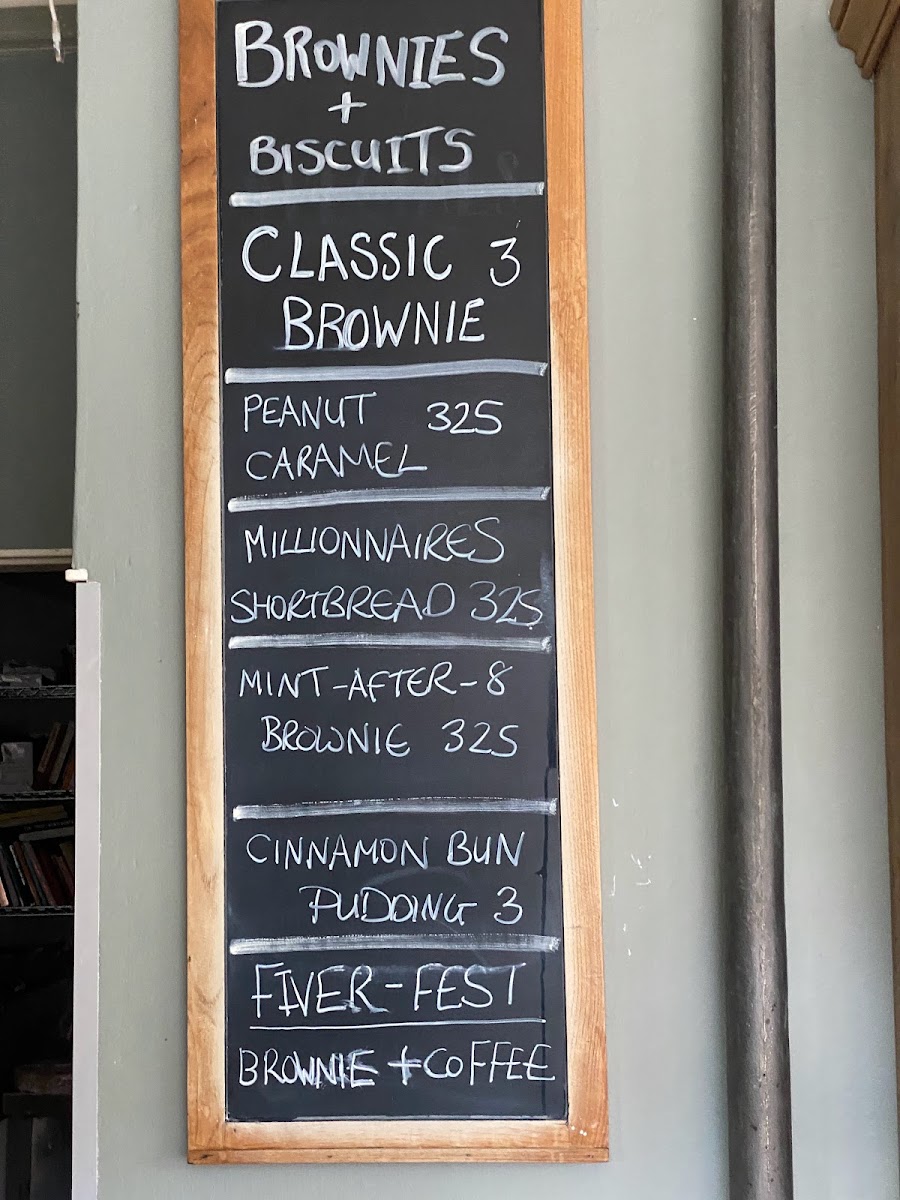 BROWNIES
+
BISCUITS
CLASSIC 3
BROWNIE
PEANUT 325
CARAMEL
MILLIONNAIRES
SHORTBREAD 325
MINT-AFTER-8
BROWNIE 325
CINNAMON BUN
PUDDING 3
FIVER-FEST
BROWNIE + COFFEE